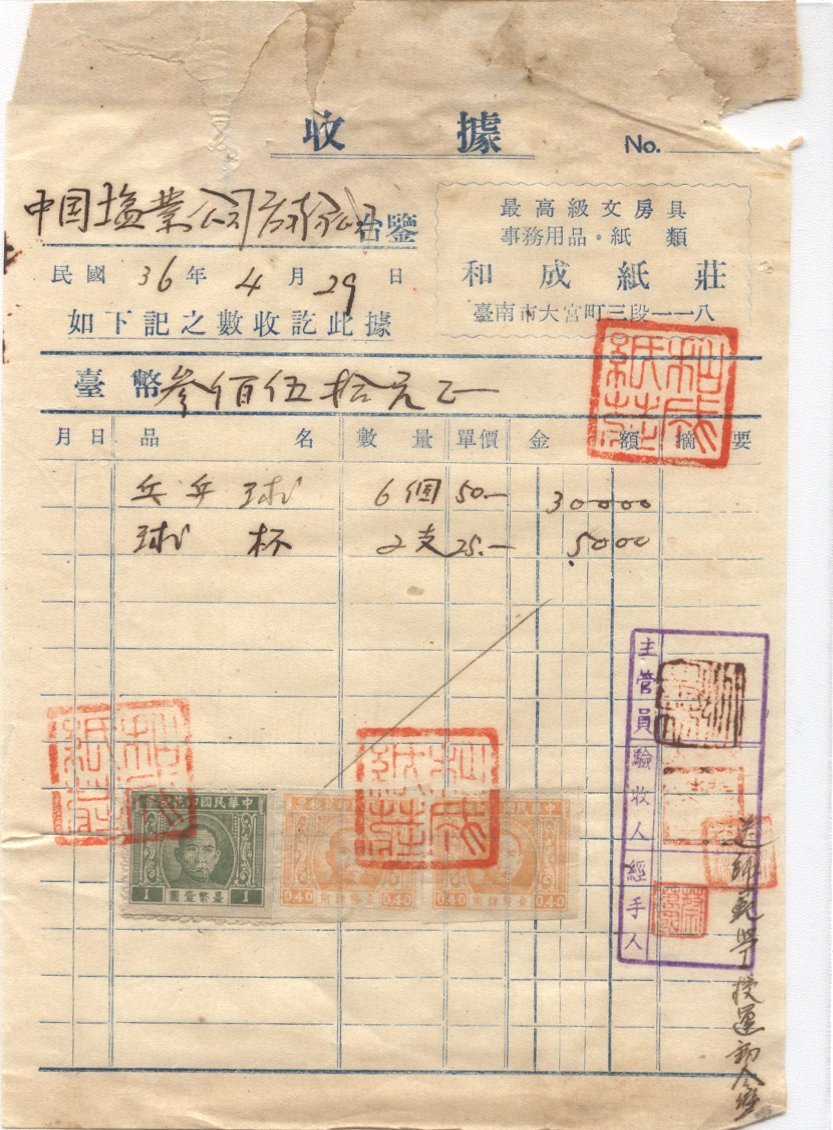 收據
No.
中国塩業公司 台鑒
最高級文房具
事務用品・紙類
和成紙莊
臺南市大宮町三段一一八
民國36年4月29日
如下記之數收訖此據
臺幣叁佰伍拾元正
和成紙莊
月日 品名 數量 單價 金額 摘要
乒乓球 6個 50.- 30000
球杯 2支 25.- 5000
主管員 驗收人 經手人
和成紙莊
和成紙莊
中華民國印花稅票
1 臺幣壹圓 1
0.40 臺幣肆角 0.40
中華民國印花稅票
0.40 臺幣肆角 0.40
送師範學校運動會